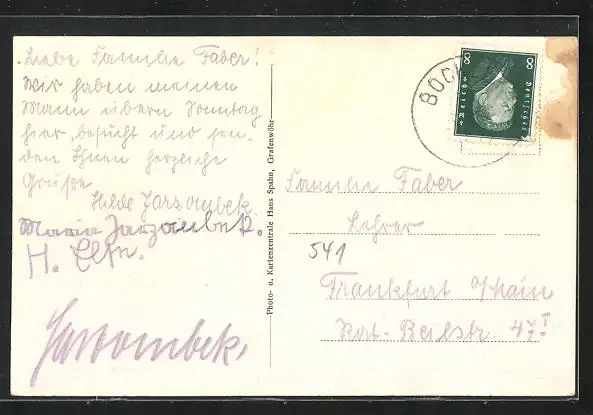 Liebe Familie Faber!
Wir haben meinen
Mann übern Sonntag
hier besucht und sen-
den Ihnen herzliche
Grüße.
Hilde Jarzombek.
Maria Jarzombek.
H.
Jarzombek.
Photo- u. Kartenzentrale Hans Spahn, Grafenwöhr
BOCH
8 8
Deutsches
Reich
Familie Faber
Lehrer
541
Frankfurt a/Main
Rat-Beilstr. 47 I